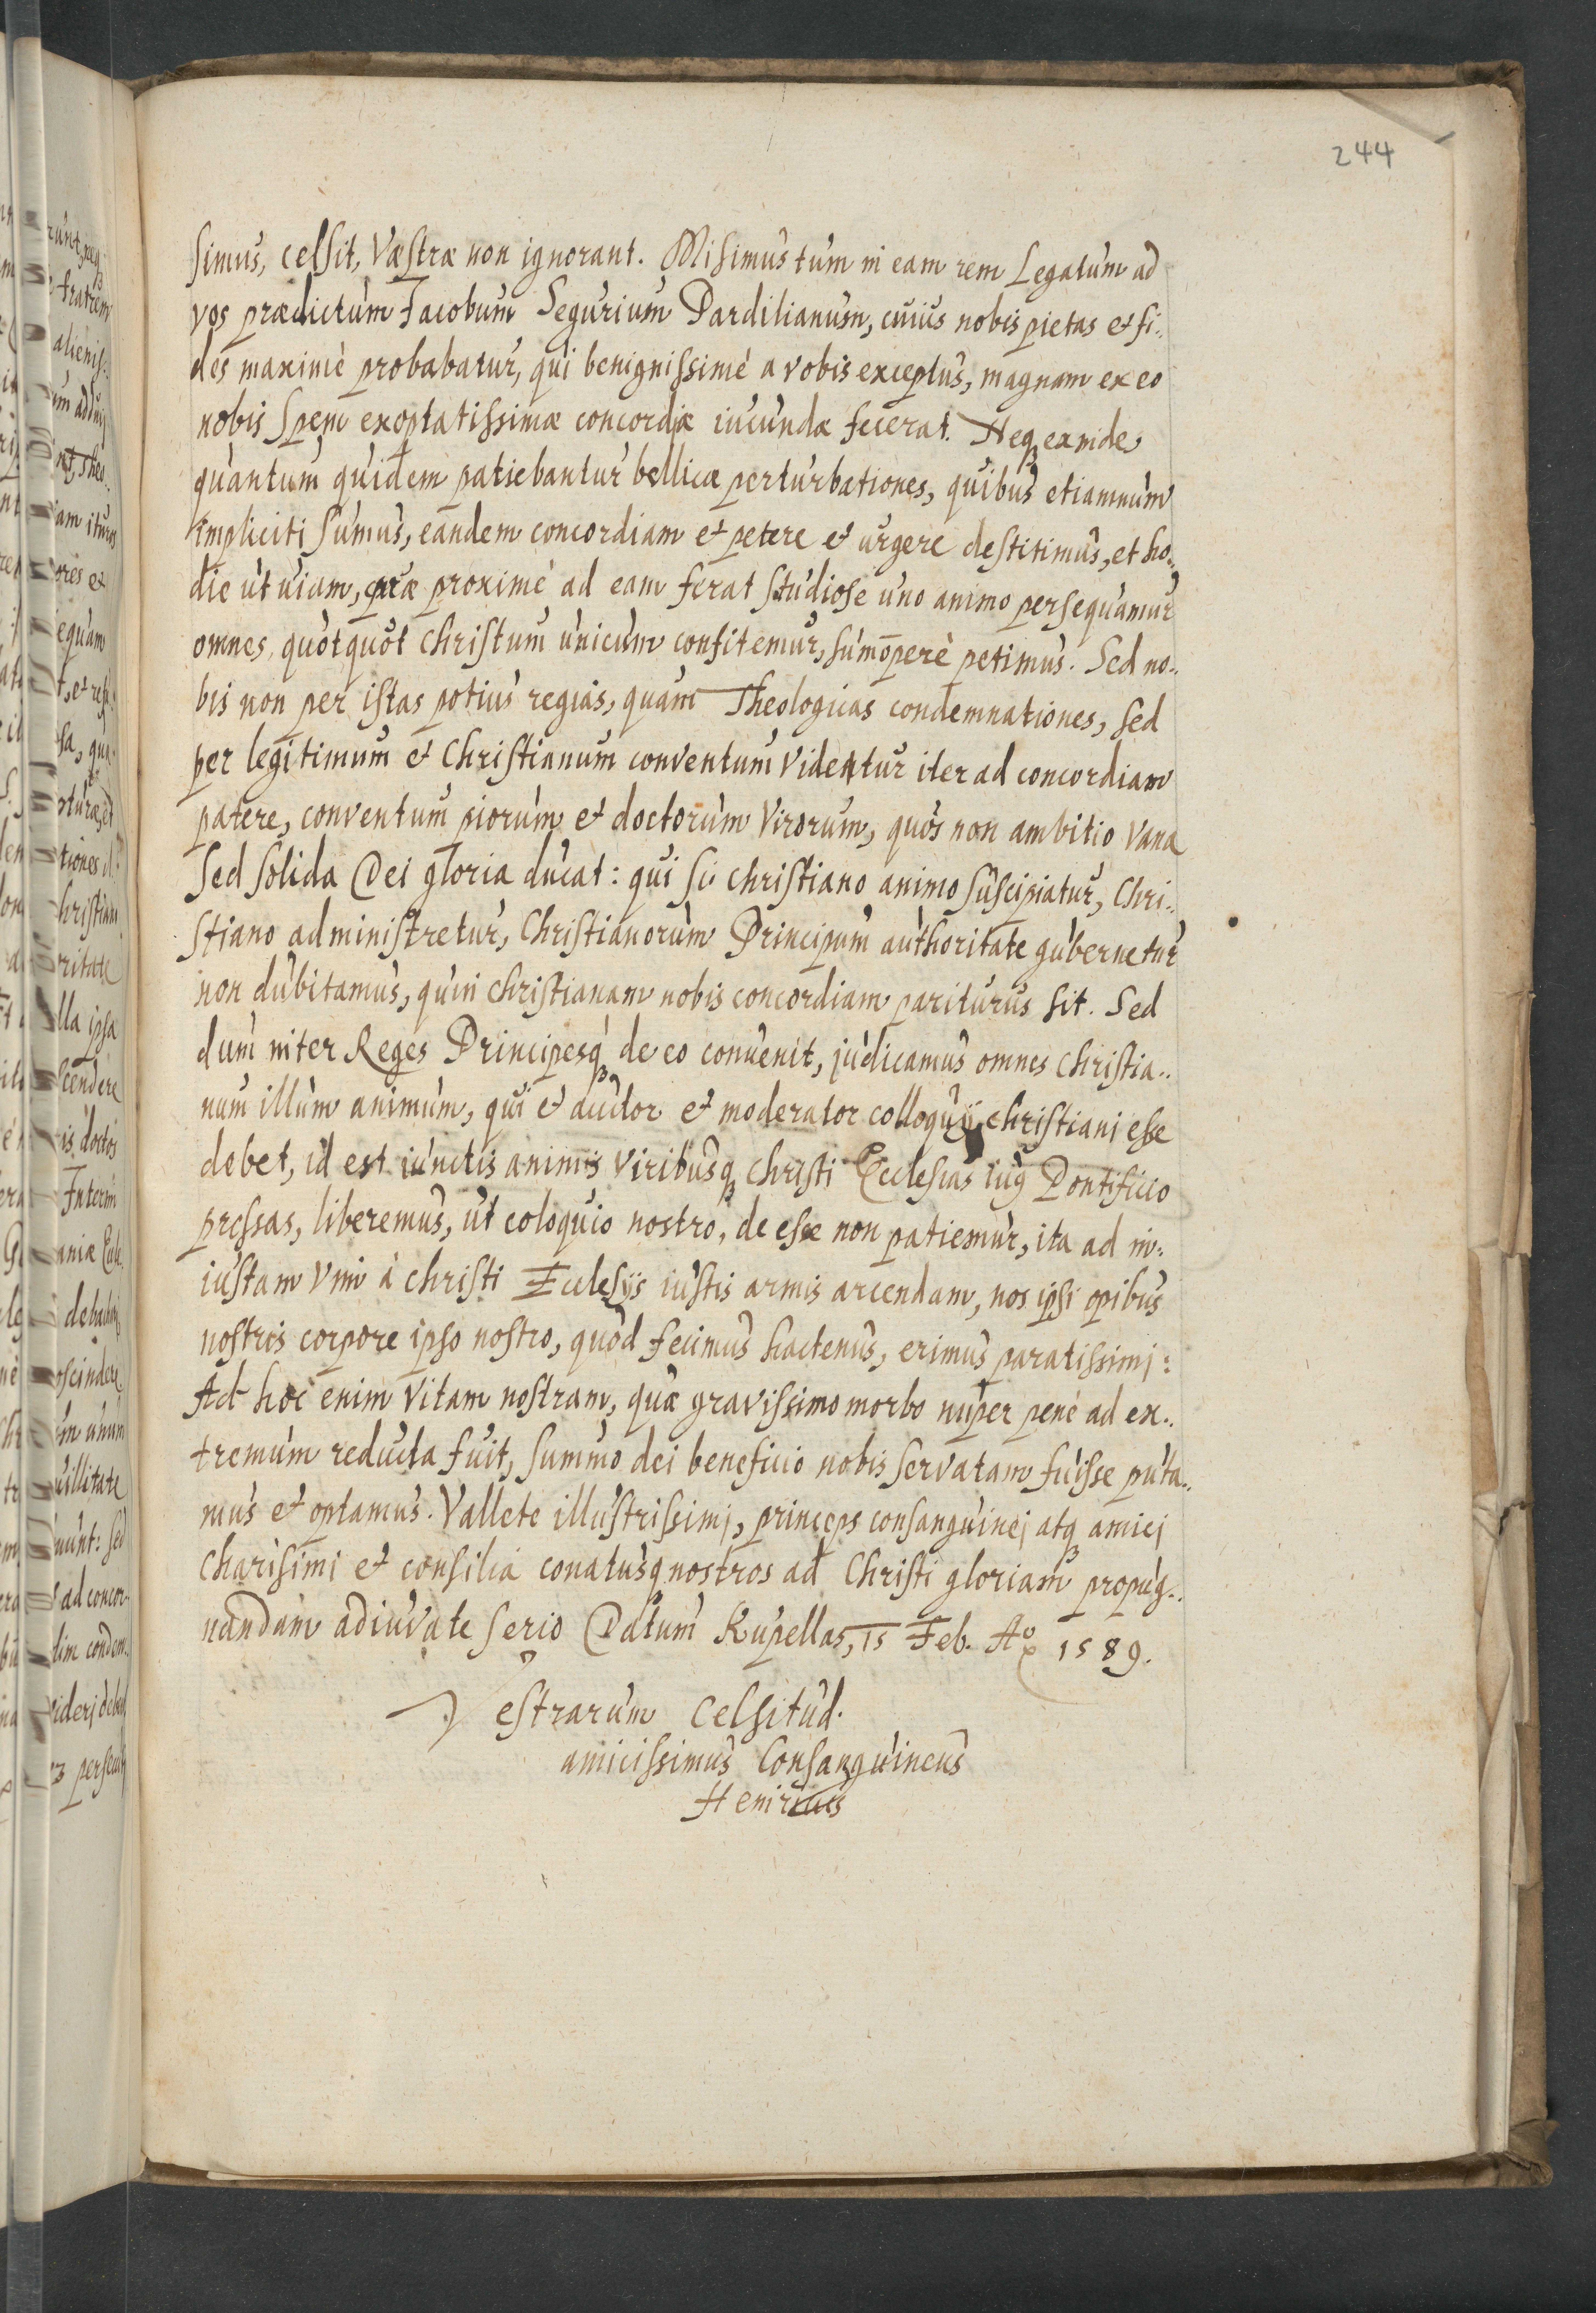 244
simus, celsit, Væstræ non ignorant. Misimus tum in eam rem Legatum ad
vos prædictum Jacobum Segurium Pardilianum, cuius nobis pietas et fi..
des maximè probabatur, qui benignissimè a vobis exceptus, magnam ex eo
nobis spem exoptatissimæ concordiæ iucundæ fecerat. Neqꝫ exinde
quantum quidem patiebantur bellicæ perturbationes, quibus etiamnum
impliciti sumus, eandem concordiam et petere et urgere destitimus, et ho..
die ut uiam, quæ proximè ad eam ferat studiose uno animo persequamur
omnes, quotquot Christum unicum confitemur, sumōperè petimus. Sed no..
bis non per istas potius regias, quam Theologicas condemnationes, sed
per legitimum et Christianum conventum videntur iter ad concordiam
patere, conventum piorum et doctorum Virorum, quos non ambitio vana
Sed solida Dei gloria ducat: qui si christiano animo suscipiatur, Chri..
stiano administretur, Christianorum Principum authoritate gubernetur
non dubitamus, quin christianam nobis concordiam pariturus sit. Sed
dum inter Reges Principesqꝫ de eo convenit, judicamus omnes Christia..
num illum animum, qui et auctor et moderator colloquij christiani esse
debet, id est iunctis animis viribusqꝫ Christi Ecclesias iug Pontificio
pressas, liberemus, ut coloquio nostro, de esse non patiemur, ita ad in:
iustam vim à christi Ecclesijs iustis armis arcendam, nos ipsi opibus
nostris corpore ipso nostro, quod fecimus hactenus, erimus paratissimj:
Ad hoc enim vitam nostram, quæ gravissimo morbo nuper penè ad ex..
tremum reducta fuit, summo dei beneficio nobis servatam fuisse puta..
mus et optamus. Vallete illustrissimj, princeps consanguinej atqꝫ amicj
Charisimi et consilia conatusqꝫ nostros ad Christi gloriam propug..
nandam adiuvate serio Datum Rupellas, 15 Feb. Aº 1589.
Vestrarum Celsitud.
amicissimus Consanguineus
Henricus